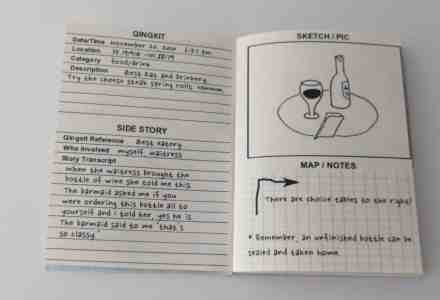 QINGKIT
Date/Time November 20, 2010
Location
Category food/drink
Description Best Bar and Drinkery
Try the cheese steak spring rolls
SIDE STORY
Qingkit Reference Best Eatery
Who Involved myself, waitress
Story Transcript
When the waitress brought the
bottle of wine she told me this
The barmaid asked me if you
were ordering this bottle all to
yourself and i told her, yes he is
The barmaid said to me "that's
so classy."
SKETCH / PIC
MAP / NOTES
There are choice tables to the right!
* Remember, an unfinished bottle can be
sealed and taken home